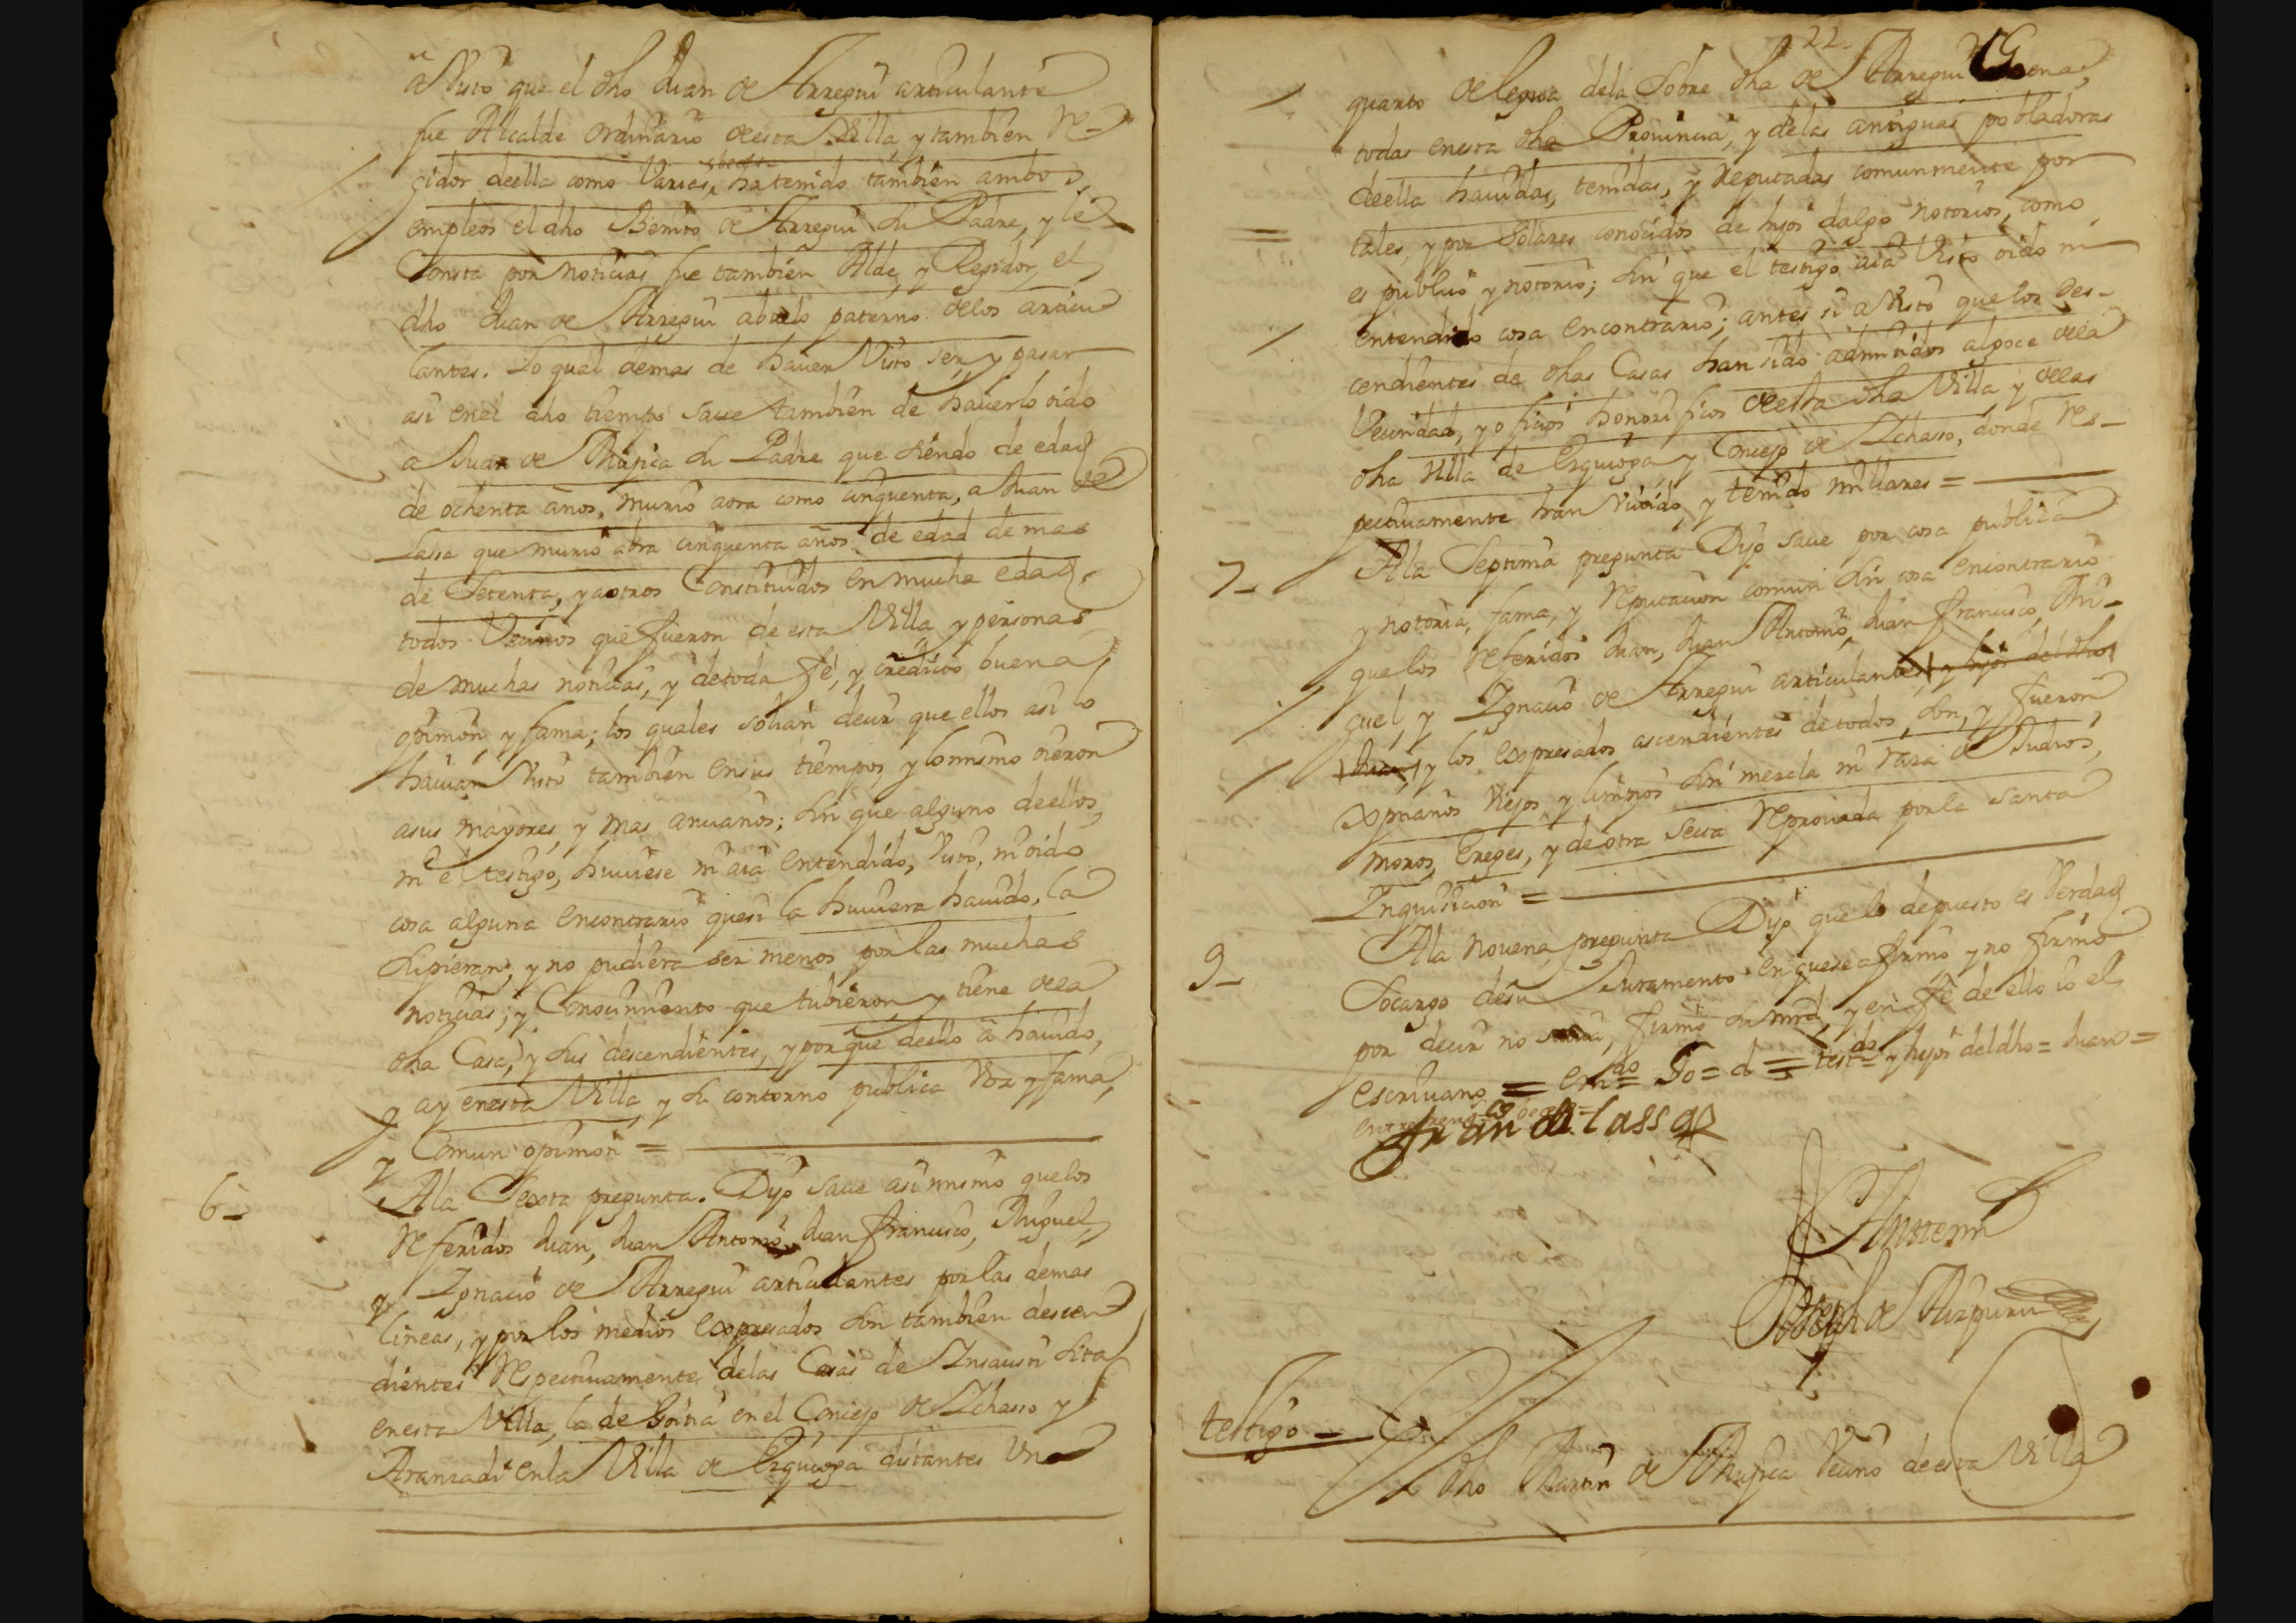 a visto que el dho Juan de Arregui articulante
fue Alcalde ordinario de esta Villa y tambien Re-
gidor de ella como Varias ha tenido tambien ambos
empleos el dho Benito de Arregui su Padre, y le
Consta por noticias fue tambien Alde, y Regidor, el
dho Juan de Arregui abuelo paterno de los articu
lantes. Lo qual demas de haver Visto ser, y pasar
asi en el dho tiempo save tambien de haverlo oido
a Juan de Mujica su Padre que siendo de edad
de ochenta años, murio aora como cinquenta, a Juan de
Lassa que murio abra cinquenta años de edad de mas
de Setenta, y a otros Constituidos en mucha edad,
todos Vecinos que fueron de esta Villa y personas
de muchas noticias, y de toda fé, y credito buena
opinion y fama; los quales solian decir que ellos asi lo
havian Visto tambien en sus tiempos, y lo mismo oieron
a sus mayores, y mas ancianos; sin que alguno de ellos,
ni el testigo, huviese ni aia entendido, Visto, ni oido
cosa alguna en contrario que si la huviera havido, la
supieran, y no pudiera ser menos por las muchas
noticias, y Conocimiento que tubieron, y tiene de la
dha Casa, y sus descendientes, y por que de ello a havido,
y ay en esta Villa, y su contorno publica Voz y fama,
y Comun opinion =
6- A la Sexta pregunta. Dijo save asi mismo que los
Referidos Juan, Juan Antonio, Juan francisco, Miguel,
y Ignacio de Arregui articulantes por las demas
lineas, y por los medios expresados son tambien descen
dientes Respectivamente de las Casas de Insausti sita
en esta Villa, la de Goitia en el Concejo de Ichasso y
Aranzadi en la Villa de Ezquioga distantes Un
22
quarto de legua de la Sobre dha de Arregui
todas en esta dha Provincia, y de las antiguas pobladoras
de ella havidas, tenidas, y Reputadas comunmente por
tales, y por Solares conocidos de hijos dalgo notorios, como
es publico y notorio; sin que el testigo aia Visto oido ni
entendido cosa en contrario; antes si a visto que los des-
cendientes de dhas Casas han sido admitidos al goce de la
Vecindad, y oficios honorificos de esta dha Villa y de las
dha Villa de Ezquioga, y Concejo de Ichasso, donde Res-
pectivamente han Vivido, y tenido millares =
7- A la Septima pregunta Dijo save por cosa publica
y notoria, fama, y Reputacion comun sin cosa en contrario
que los Referidos Juan, Juan Antonio, Juan francisco, Mi-
guel, y Ignacio de Arregui articulantes, y hijos del dho
Juan, y los expresados ascendientes de todos, son, y fueron
Xprianos Viejos, y limpios sin mezcla ni raza de Judios,
moros, Ereges, y de otra secta Reprovada por la Santa
Inquisicion =
9- A la novena pregunta Dijo que lo depuesto es Verdad
Socargo de su Juramento en que se afirmo y no firmo
por decir no savia, firmo su mrd, y en fe de ello io el
escrivano = emdo = Go = d = testdo = y hijos del dho = Juan =
Juan de Lassa
Ante mi
Joseph de Aizpuru
testigo -
El dho Martin de Mujica Vecino de esta Villa